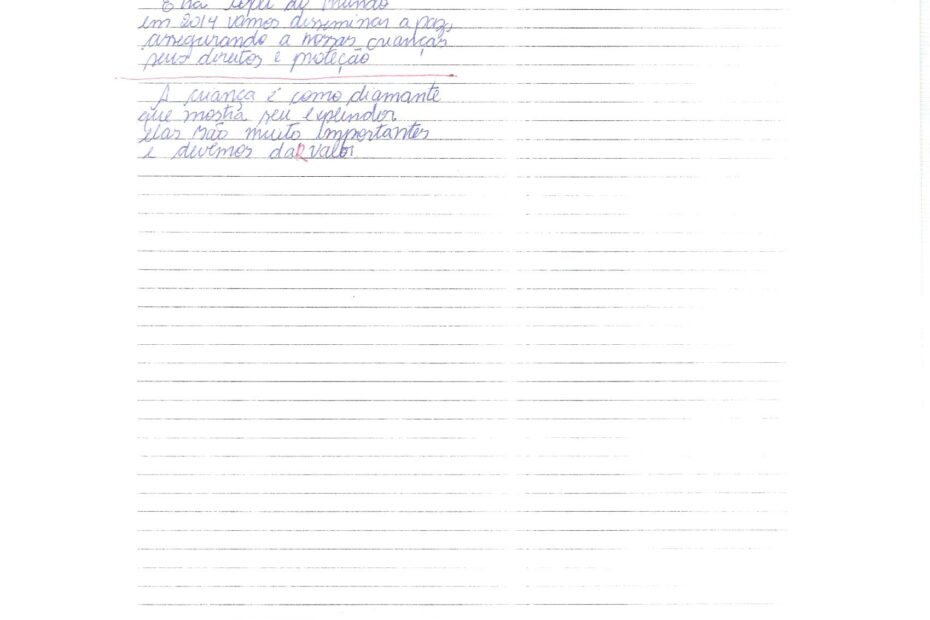 E na copa do mundo
em 2014 vamos disseminar a paz,
assegurando a nossas crianças
seus direitos e proteção
A criança é como diamante
que mostra seu explendor
elas são muito importantes
e devemos daR valor